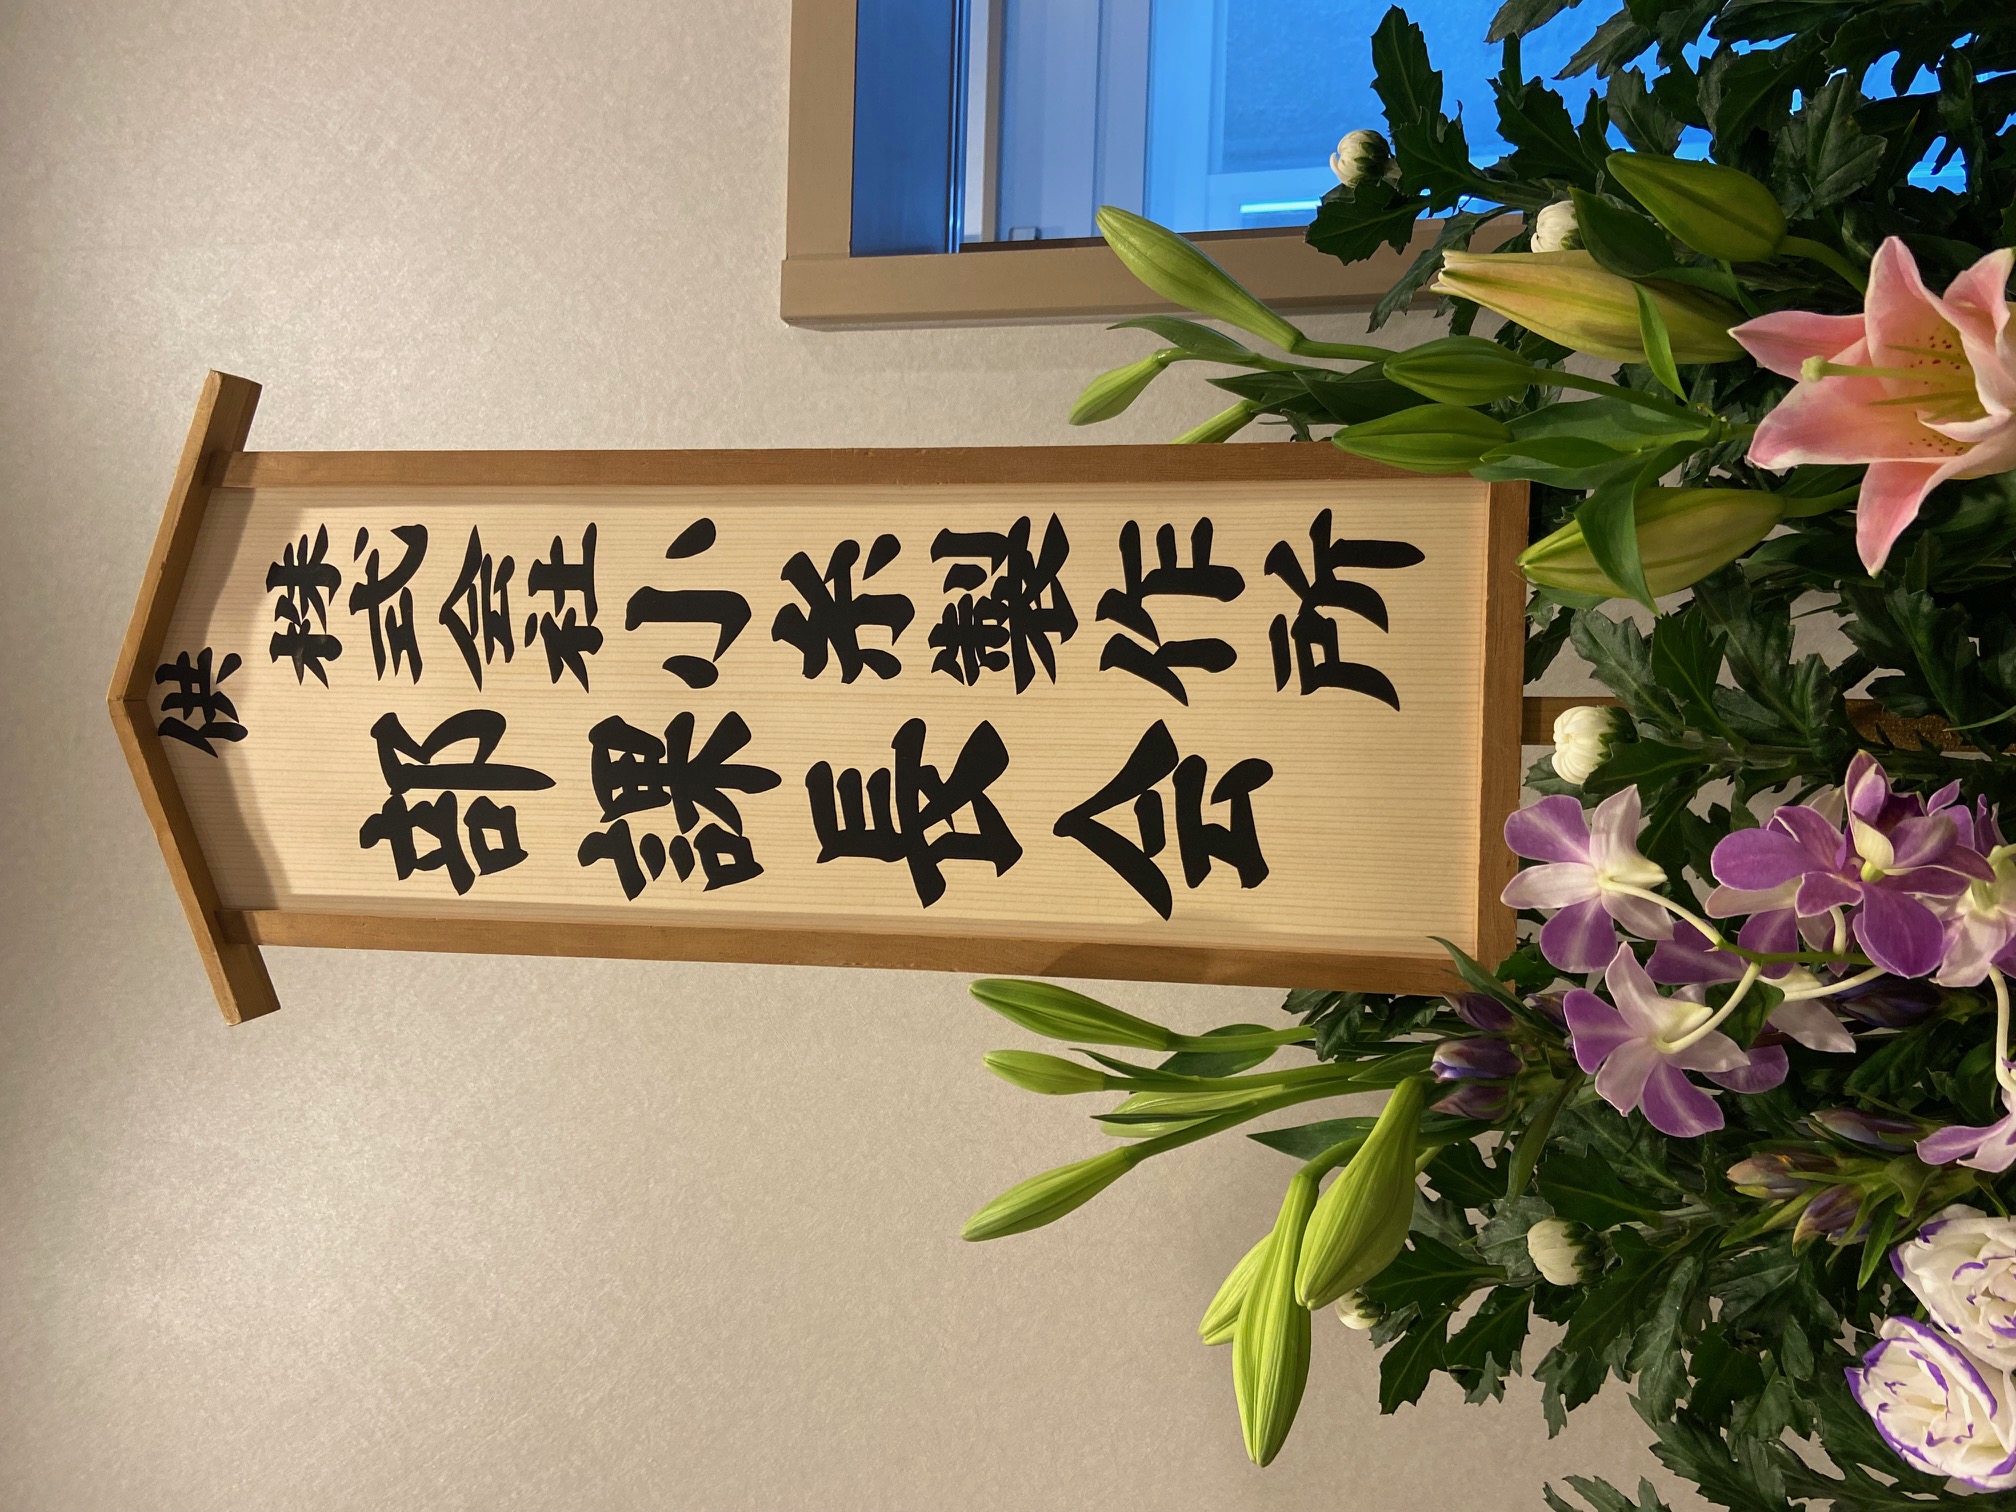 供
株式会社小糸製作所
部課長会